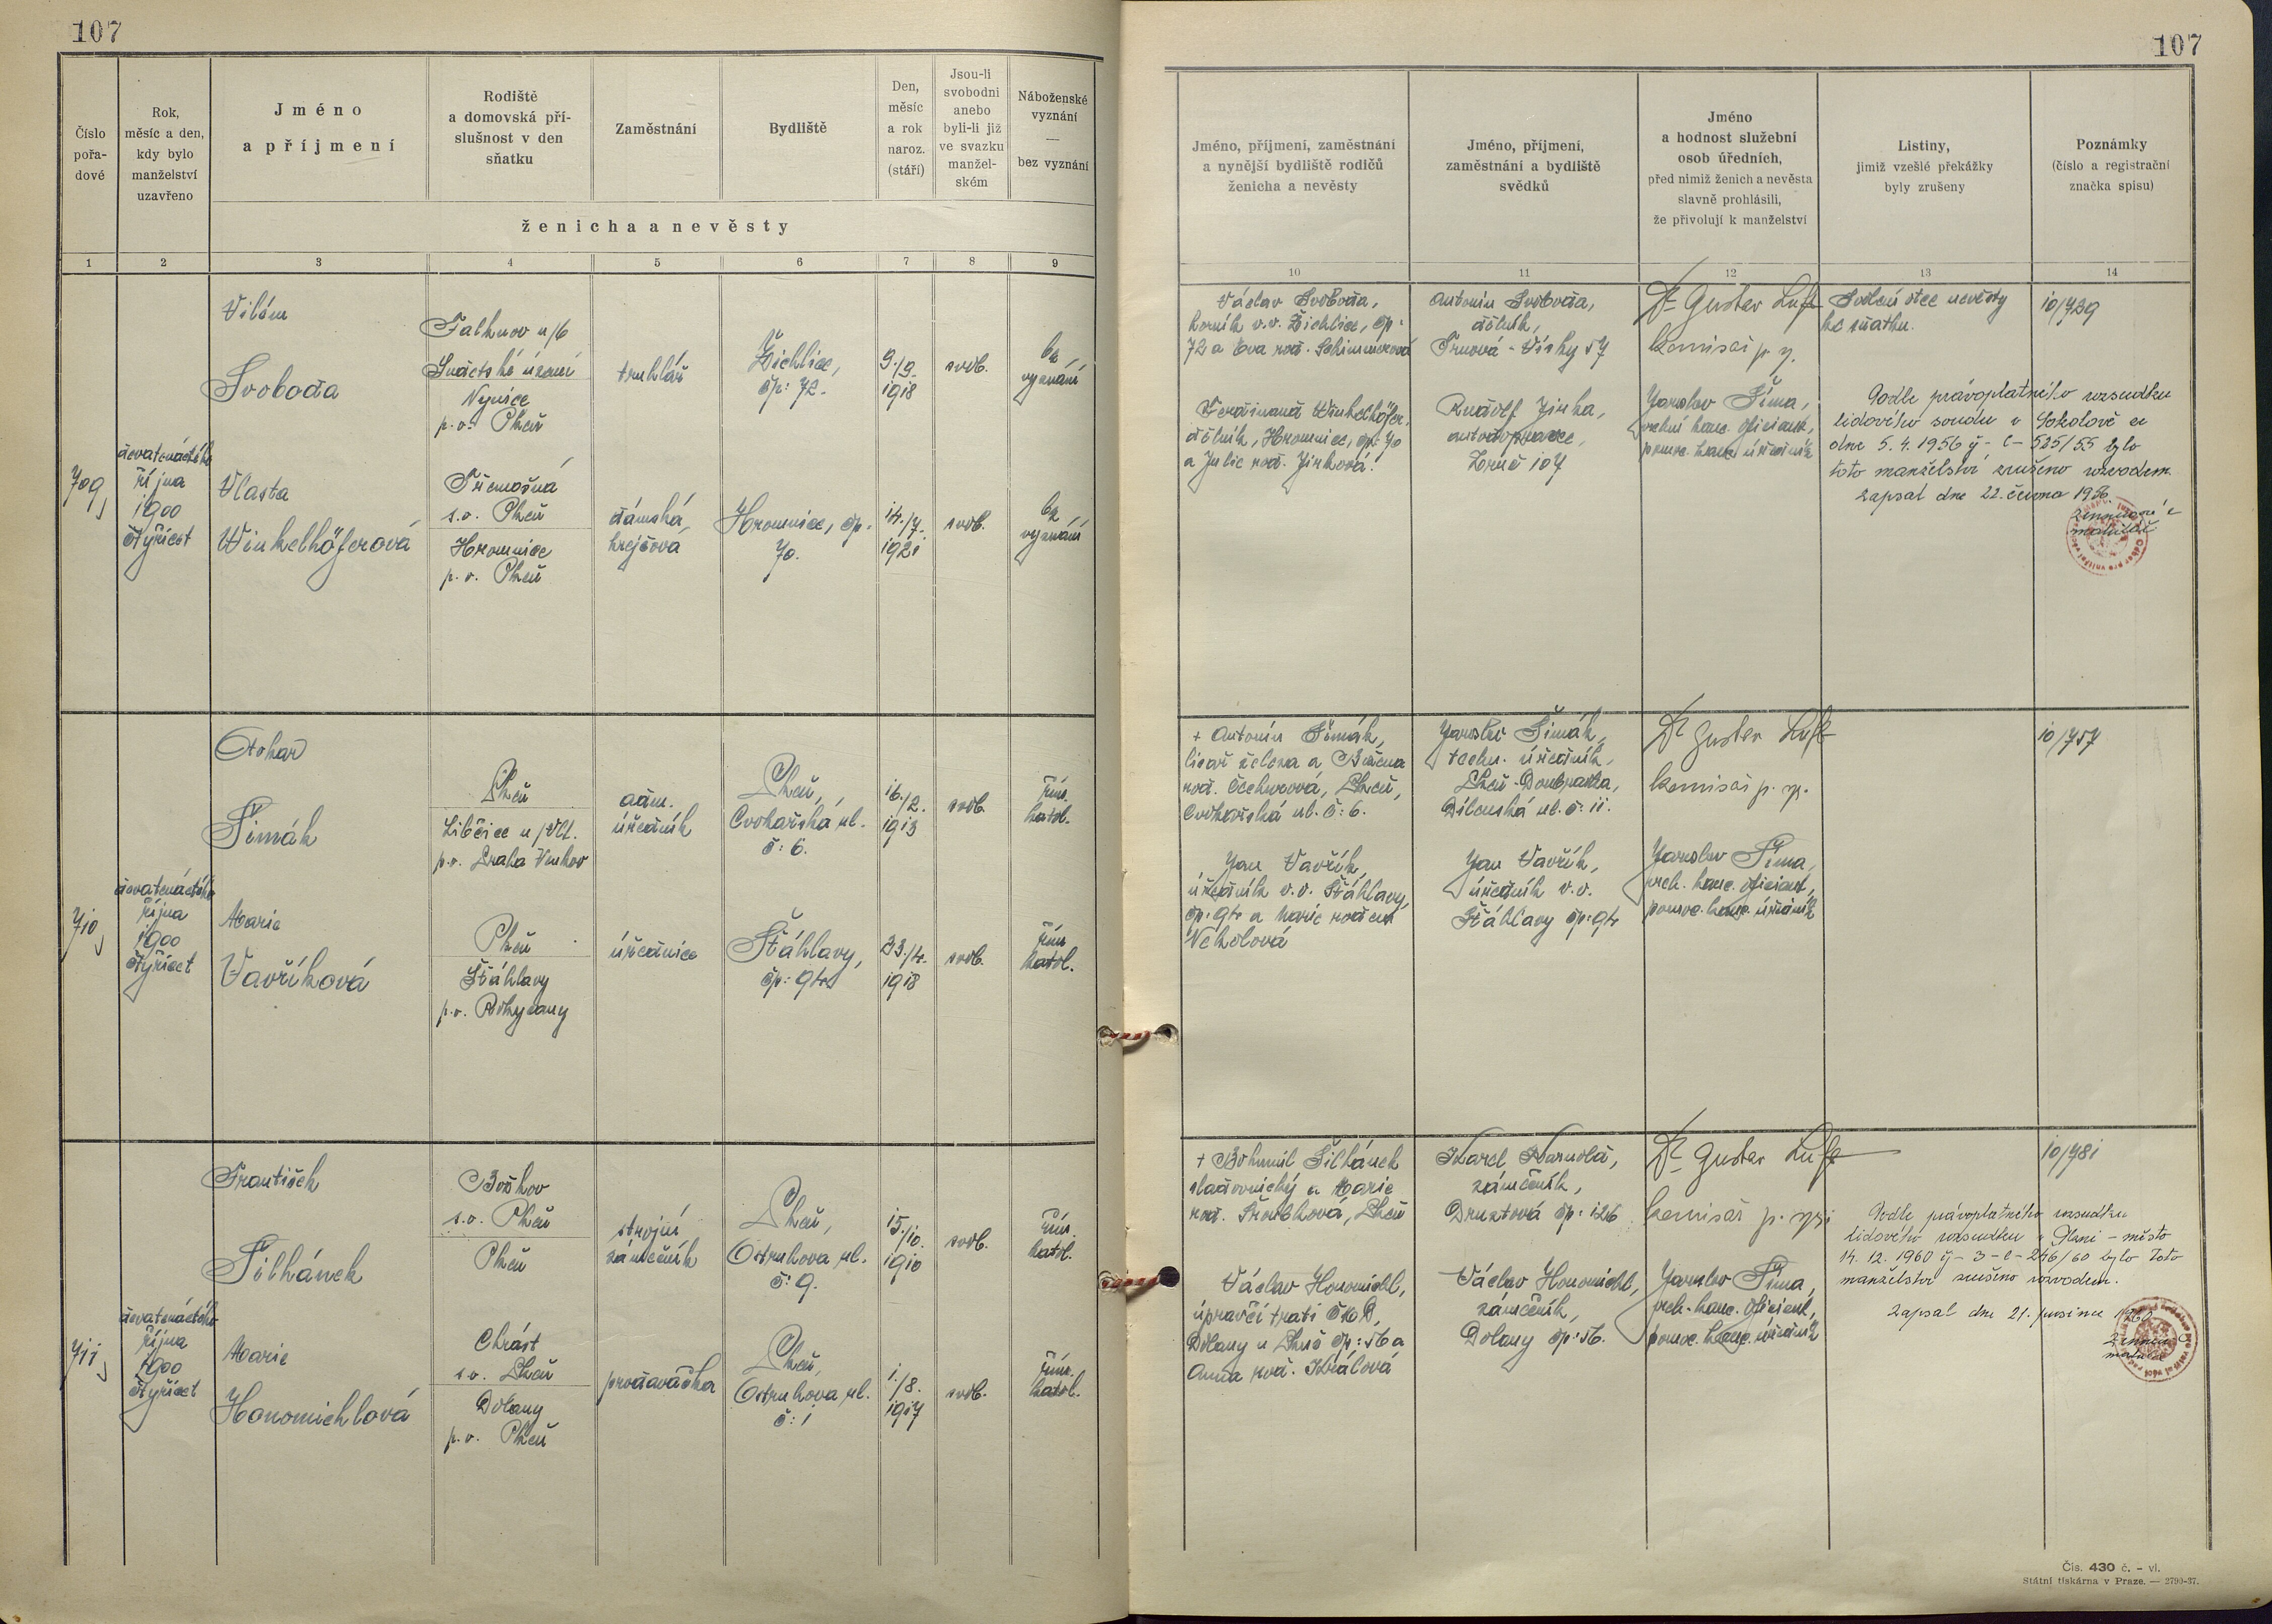 107
Číslo
pořa-
dové
Rok,
měsíc a den,
kdy bylo
manželství
uzavřeno
Jméno
a příjmení
Rodiště
a domovská pří-
slušnost v den
sňatku
Zaměstnání
Bydliště
Den,
měsíc
a rok
naroz.
(stáří)
Jsou-li
svobodni
anebo
byli-li již
ve svazku
manžel-
ském
Náboženské
vyznání
—
bez vyznání
ženicha a nevěsty
1 2 3 4 5 6 7 8 9
709
devatenáctého
října
1900
čtyřicet
Vilém
Svoboda
Falknov n/O
Sudetské území
p.o. Plzeň
truhlář
Žichlice,
čp: 72.
9./9.
1918
svob.
bez
vyznání
Vlasta
Winkelhöferová
Třemošná
s.o. Plzeň
Hromnice
p.o. Plzeň
dámská
krejčová
Hromnice, čp.
70.
14./7.
1921
svob.
bez
vyznání
710
devatenáctého
října
1900
čtyřicet
Otokar
Šimák
Plzeň
Libčice n/Vlt.
p.o. Praha Venkov
adm.
úředník
Plzeň,
Cvokařská ul.
č: 6.
16./2.
1913
svob.
řím.
katol.
Marie
Vavříková
Plzeň
Šťáhlavy
p.o. Rokycany
úřednice
Šťáhlavy,
čp: 94
23./4.
1918
svob.
řím.
katol.
711
devatenáctého
října
1900
čtyřicet
František
Šilhánek
Božkov
s.o. Plzeň
Plzeň
strojní
zámečník
Plzeň,
Ostruhova ul.
č: 9.
15./10.
1910
svob.
řím.
katol.
Marie
Honomichlová
Chrást
s.o. Plzeň
Dolany
p.o. Plzeň
prodavačka
Plzeň,
Ostruhova ul.
č: 1
1./8.
1917
svob.
řím.
katol.
107
Jméno, příjmení, zaměstnání
a nynější bydliště rodičů
ženicha a nevěsty
Jméno, příjmení,
zaměstnání a bydliště
svědků
Jméno
a hodnost služební
osob úředních,
před nimiž ženich a nevěsta
slavně prohlásili,
že přivolují k manželství
Listiny,
jimiž vzešlé překážky
byly zrušeny
Poznámky
(číslo a registrační
značka spisu)
10 11 12 13 14
Václav Svoboda,
horník v.v. Žichlice, čp:
72 a Eva roz. Schimmerová
Ferdinand Winkelhöfer,
dělník, Hromnice, čp: 70
a Julie roz. Jirková.
Antonín Svoboda,
dělník,
Trnová - Vísky 57
Rudolf Jirka,
autodopravce,
Zruč 107
Dr. Gustav Luft
komisař p. z.
Jaroslav Šíma,
vrchní kanc. oficiant,
pomoc. kanc. úředník
Svolení otce nevěsty
ke sňatku.
Podle právoplatného rozsudku
lidového soudu v Sokolově ze
dne 5. 4. 1956 č - C - 525/55 bylo
toto manželství zrušeno rozvodem.
Zapsal dne 22. června 1956.
10/729
+ Antonín Šimák,
licař železa a Božena
roz. Čechurová, Plzeň,
Cvokařská ul. č: 6.
Jan Vavřík,
úředník v.v. Šťáhlavy,
čp: 94 a Marie rozená
Jaroslav Šimák,
techn. úředník,
Plzeň - Doubravka,
Dílenská ul. č: 11.
Jan Vavřík,
úředník v.v.
Šťáhlavy čp: 94
Dr. Gustav Luft
komisař p. z.
Jaroslav Šíma,
vrch. kanc. oficiant,
pomoc. kanc. úředník
10/757
+ Bohumil Šilhánek
sladovnický a Marie
roz. Šroubková, Plzeň
Václav Honomichl,
úpravčí trati ČMD,
Dolany u Plzně čp: 56 a
Anna roz. Králová
Karel Harnold,
zámečník,
Druztová čp: 126
Václav Honomichl,
zámečník,
Dolany čp: 56.
Dr. Gustav Luft
komisař p. z.
Jaroslav Šíma,
vrch. kanc. oficiant,
pomoc. kanc. úředník
Podle právoplatného rozsudku
lidového rozsudku v Plzni - město
14. 12. 1960 č - 3 - C - 246/60 bylo toto
manželství zrušeno rozvodem.
Zapsal dne 21. prosince 1960
10/781
Čís. 430 č. - vl.
Státní tiskárna v Praze. — 2790-37.